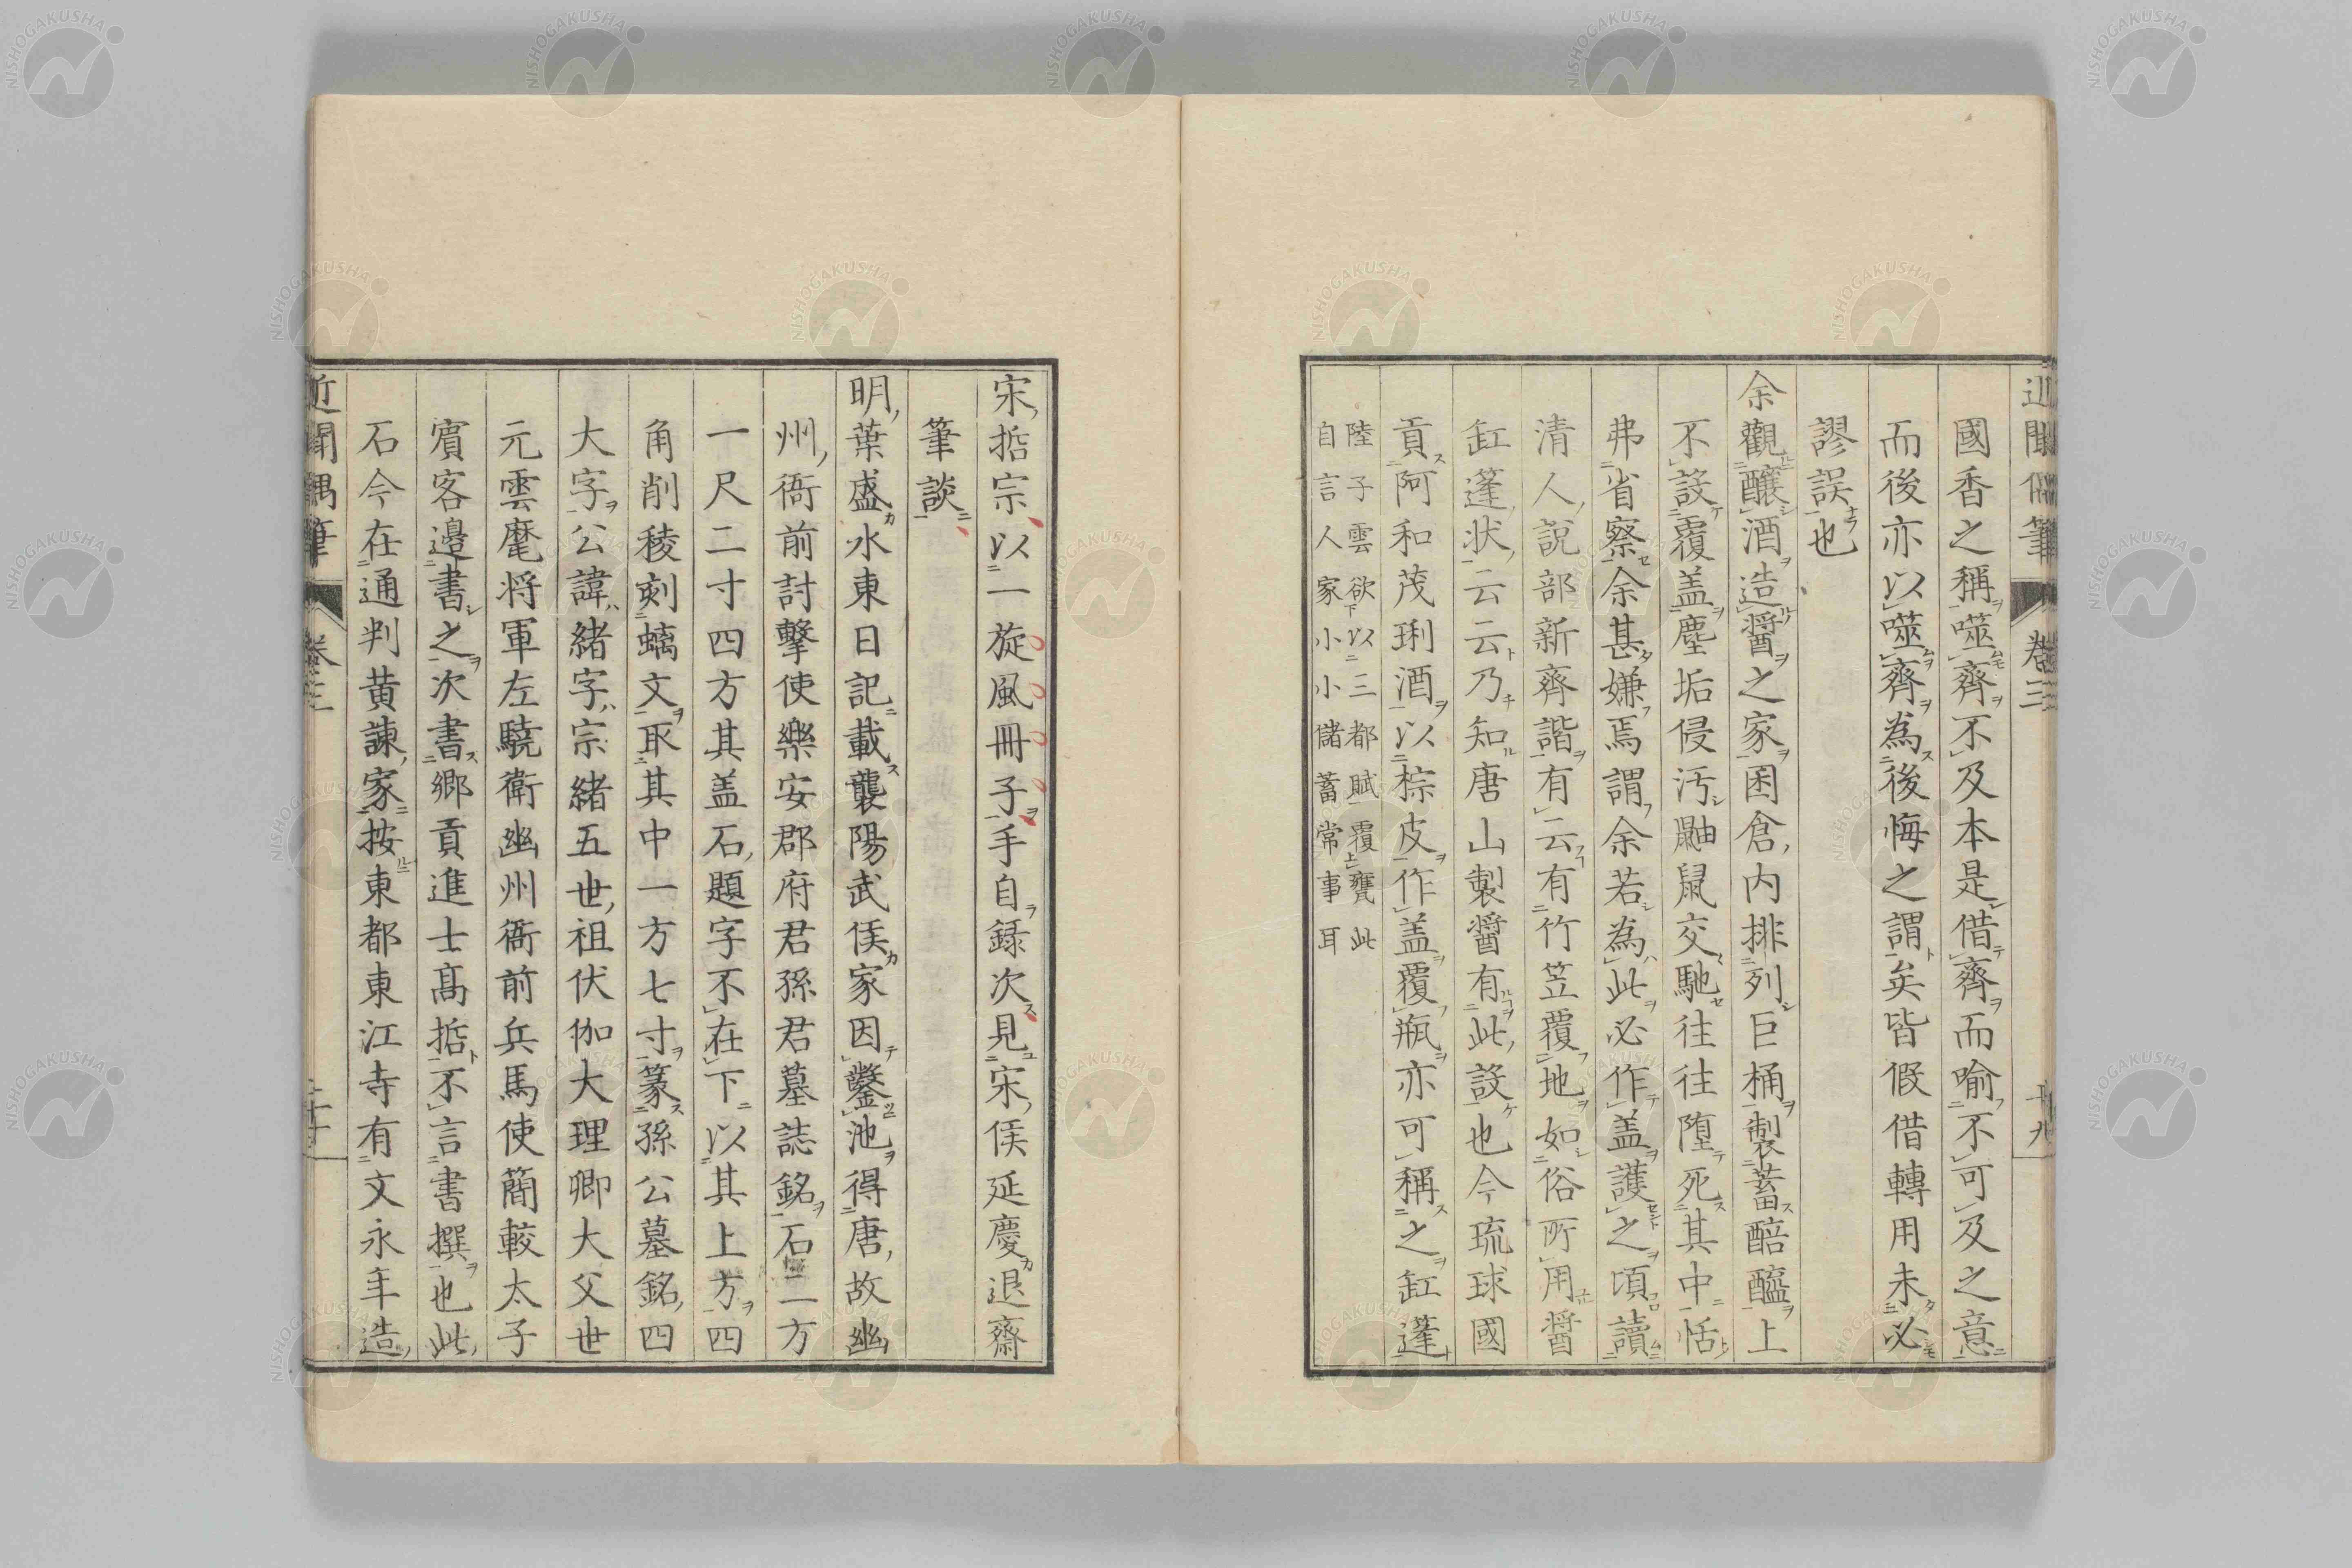 近聞偶筆 卷三 十九
國香之稱噬齊不及本是借齊而喻不可及之意
而後亦以噬齊為後悔之謂矣皆假借轉用未必
謬誤也
余觀釀酒造醬之家囷倉內排列巨桶製蓄醅醞上
不設覆盖塵垢侵汚鼬鼠交馳往往墮死其中恬
弗省察余甚嫌焉謂余若為此必作盖護之頃讀
清人說部新齊諧有云有竹笠覆地如俗所用醬
缸篷狀云云乃知唐山製醬有此設也今琉球國
貢阿和茂琍酒以棕皮作盖覆瓶亦可稱之缸篷
陸子雲欲以三都賦覆甕此
自言人家小小儲蓄常事耳
宋哲宗以一旋風冊子手自錄次見宋侯延慶退齋
筆談
明葉盛水東日記載襲陽武侯家因鑿池得唐故幽
州衙前討擊使樂安郡府君孫君墓誌銘石二方
一尺二寸四方其盖石題字不在下以其上方四
角削稜刻螭文取其中一方七寸篆孫公墓銘四
大字公諱緒字宗緒五世祖伏伽大理卿大父世
元雲麾将軍左驍衛幽州衙前兵馬使簡較太子
賓客邉書之次書郷貢進士髙掂不言書撰也此
石今在通判黄諫家按東都東江寺有文永年造
近聞偶筆 卷三 二十